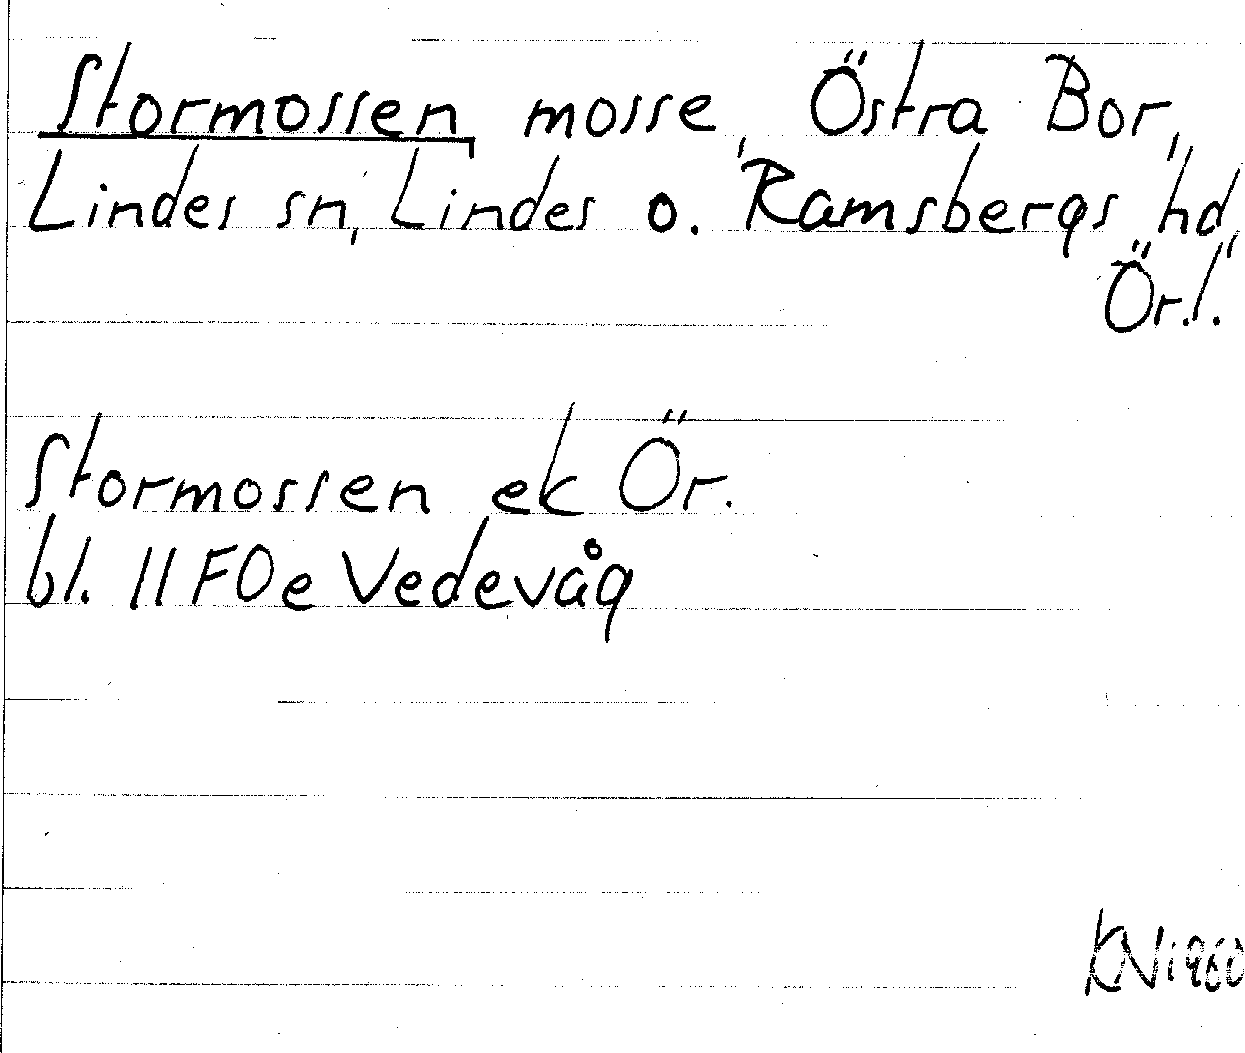 Stormossen, mosse, Östra Bor,
Lindes sn, Lindes o. Ramsbergs hd,
Ör.l.
Stormossen ek Ör.
bl. 11F0e Vedevåg
KN 1960